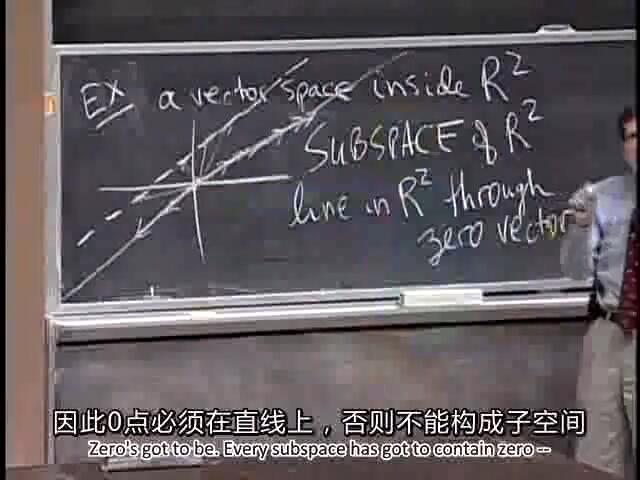 EX a vector space inside R²
SUBSPACE of R²
line in R² through
zero vector
因此0点必须在直线上，否则不能构成子空间
Zero's got to be. Every subspace has got to contain zero --